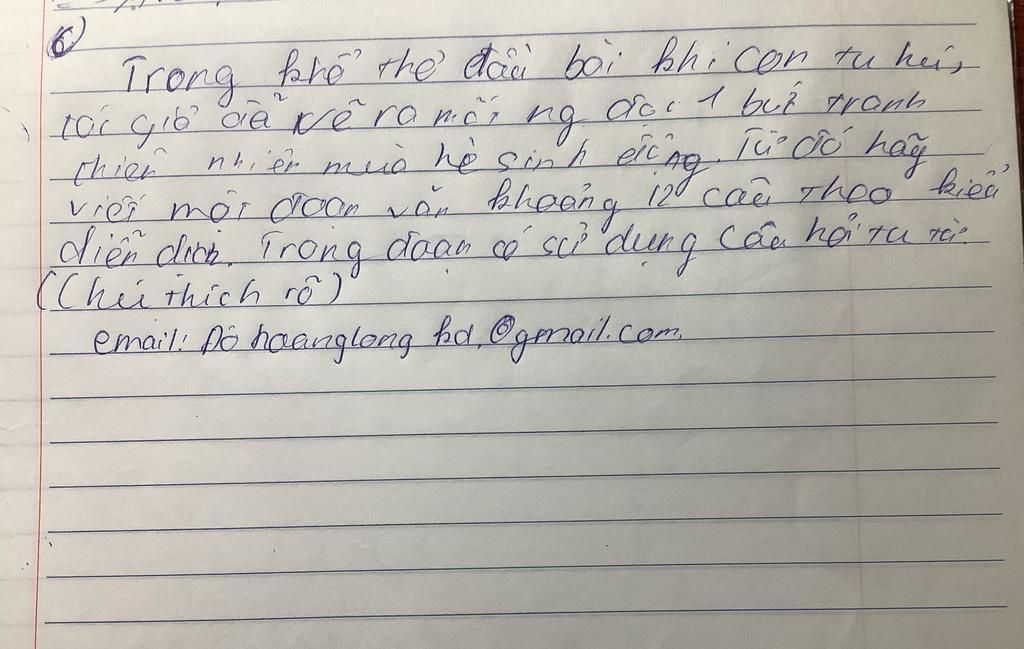 6)
Trong khổ thơ đầu bài khi con tu hú,
tác giả đã vẽ ra mắt ng đọc 1 bức tranh
thiên nhiên mùa hè sinh động. Từ đó hãy
viết một đoạn văn khoảng 12 câu theo kiểu
diễn dịch. Trong đoạn có sử dụng câu hỏi tu từ.
(Chú thích rõ)
email: Đô hoanglong bd.@gmail.com.